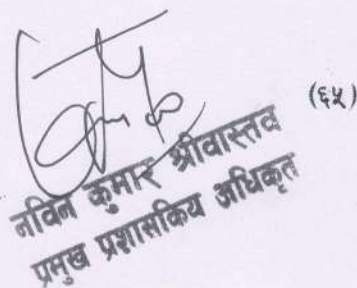 (६५)
नविन कुमार श्रीवास्तव
प्रमुख प्रशासकिय अधिकृत